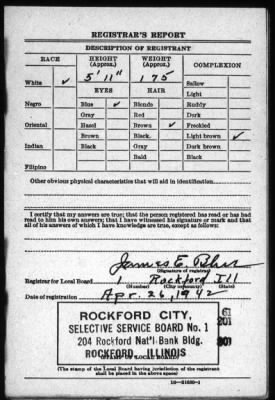 REGISTRAR'S REPORT
DESCRIPTION OF REGISTRANT
RACE HEIGHT (Approx.) WEIGHT (Approx.) COMPLEXION
White ✓ 5' 11" 175 Sallow
EYES HAIR Light
Negro Blue ✓ Blonde Ruddy
Gray Red Dark
Oriental Hazel Brown ✓ Freckled
Brown Black Light brown ✓
Indian Black Gray Dark brown
Bald Black
Filipino
Other obvious physical characteristics that will aid in identification
I certify that my answers are true; that the person registered has read or has had
read to him his own answers; that I have witnessed his signature or mark and that
all of his answers of which I have knowledge are true, except as follows:
James E.
(Signature of registrar)
Registrar for Local Board 1 Rockford Ill
(Number) (City or county) (State)
Date of registration Apr. 26, 1942
ROCKFORD CITY,
SELECTIVE SERVICE BOARD No. 1
204 Rockford Nat'l Bank Bldg.
ROCKFORD, ILLINOIS
201
201
(STAMP OF LOCAL BOARD)
(The stamp of the Local Board having jurisdiction of the registrant
shall be placed in the above space)